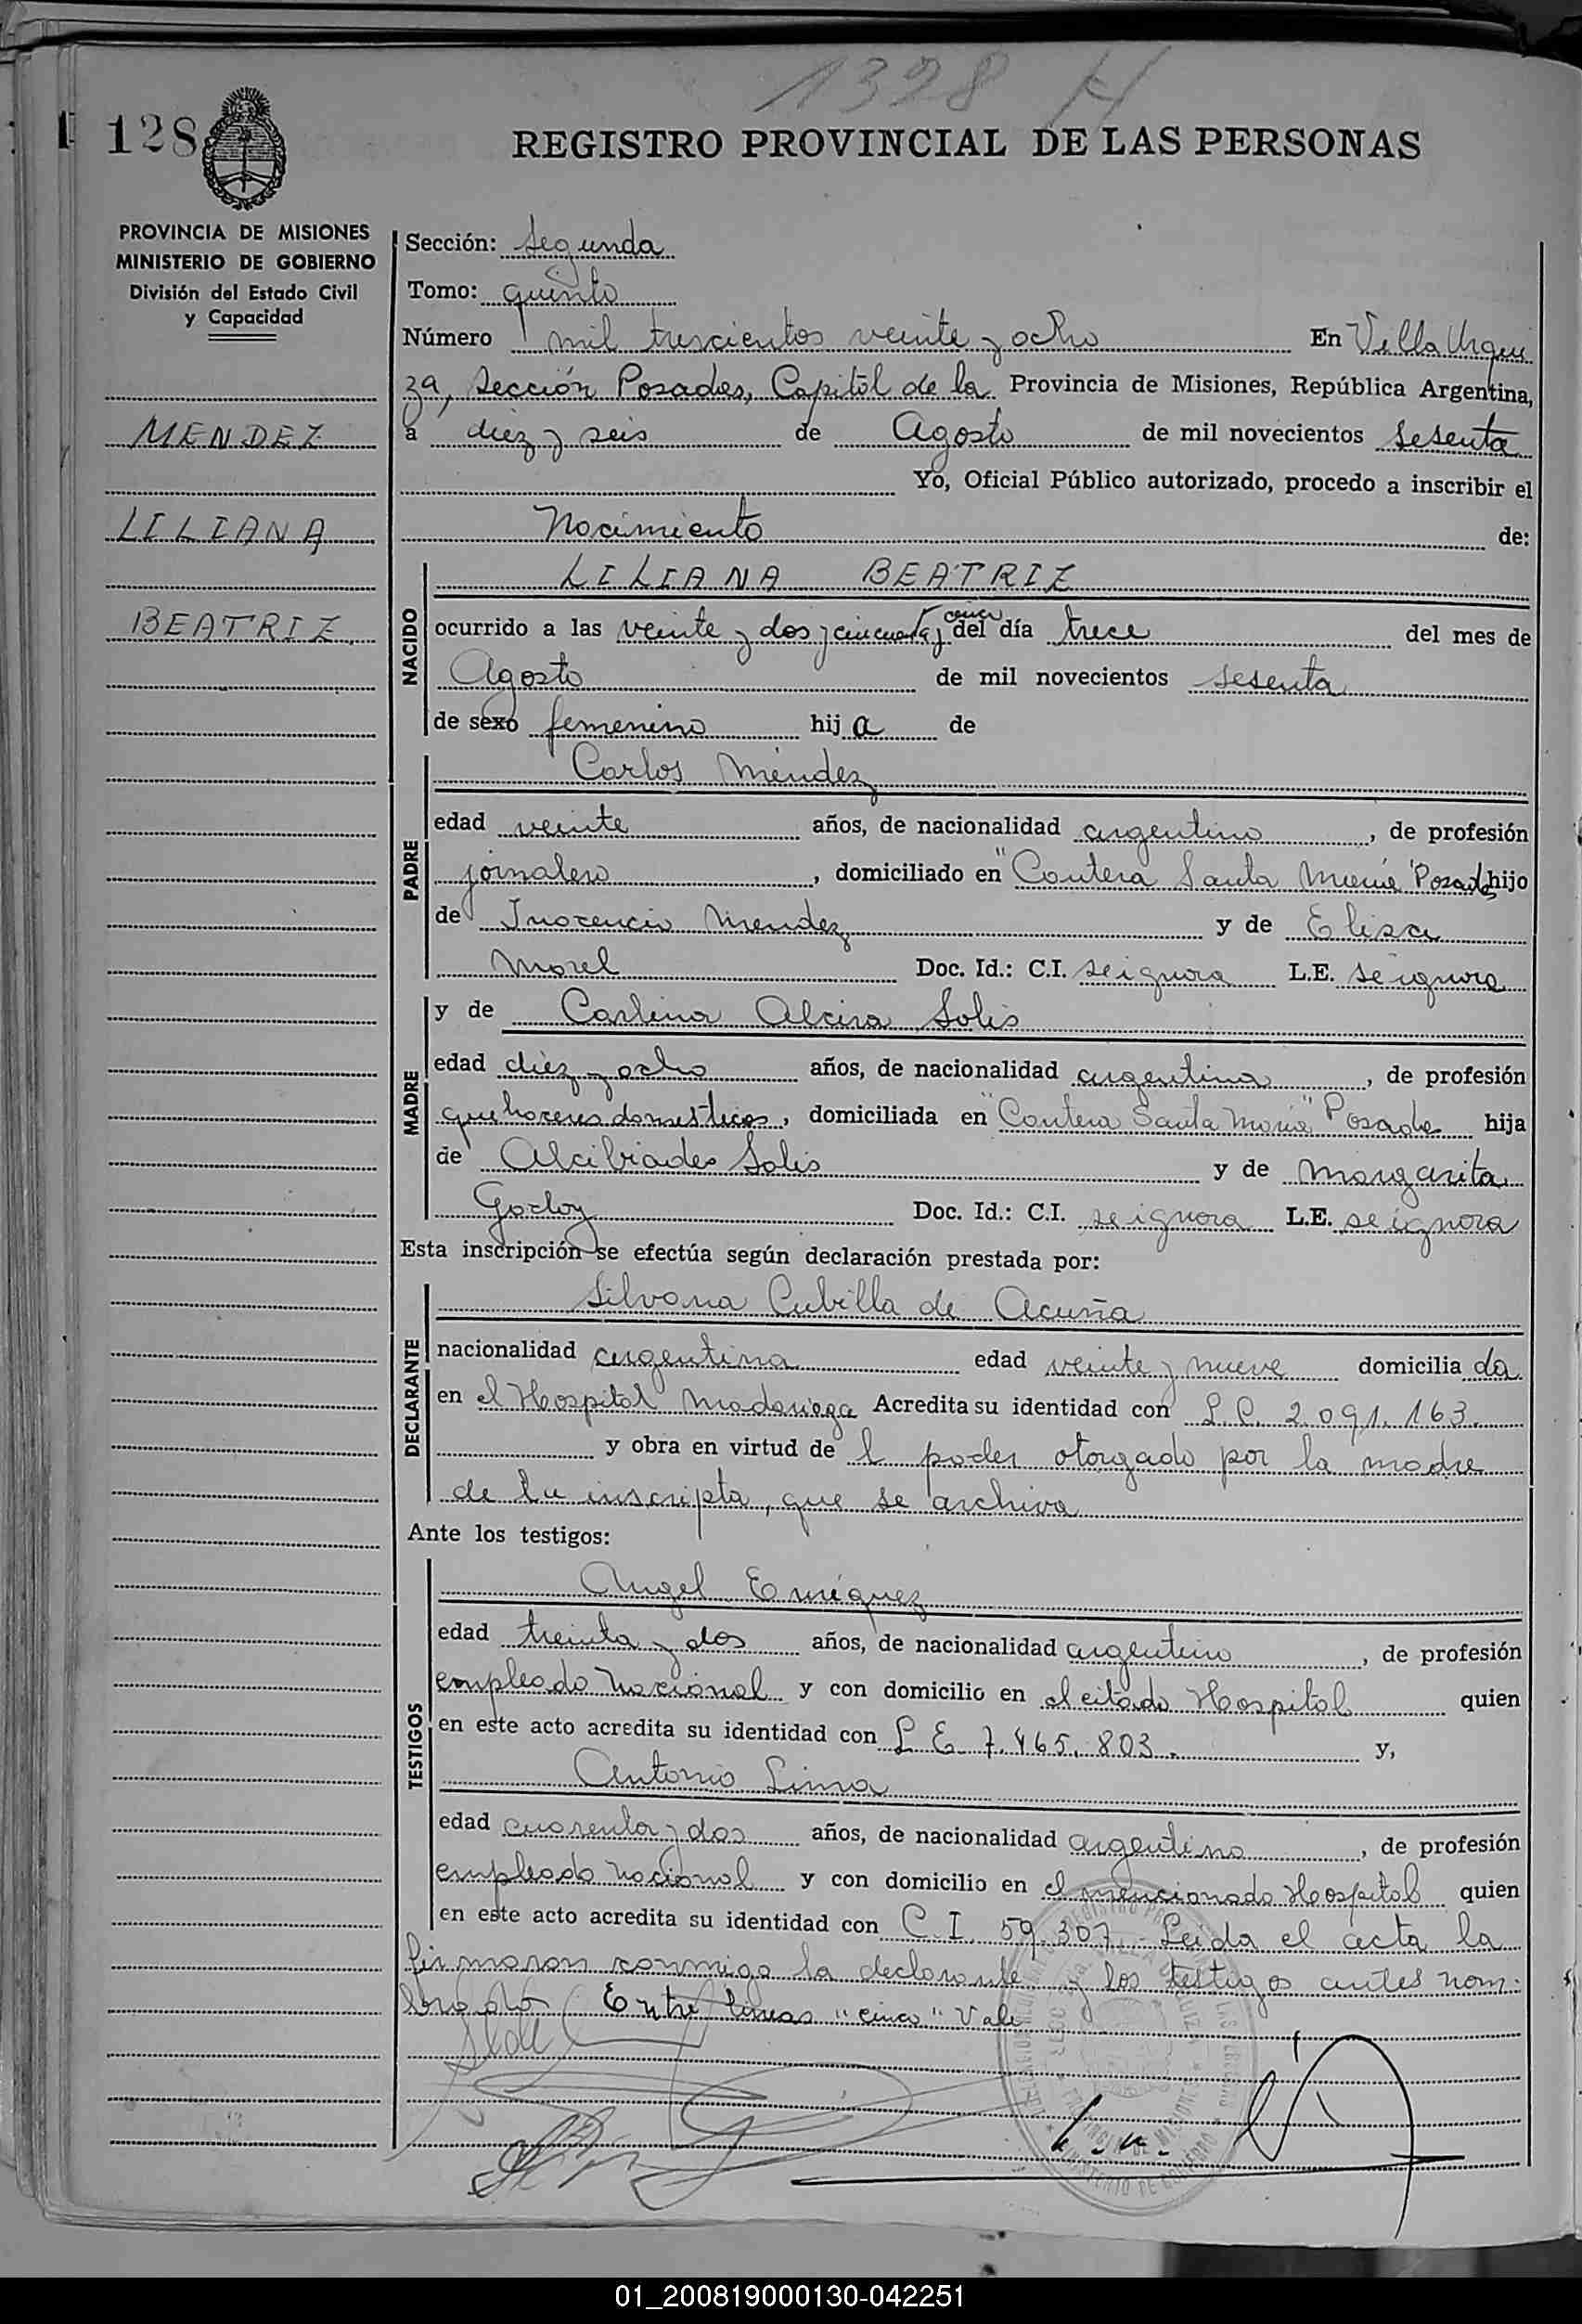 1328 H
128
REGISTRO PROVINCIAL DE LAS PERSONAS
PROVINCIA DE MISIONES
MINISTERIO DE GOBIERNO
División del Estado Civil
y Capacidad
MENDEZ
LILIANA
BEATRIZ
Sección: Segunda
Tomo: quinto
Número mil trescientos veinte y ocho En Villa Urqui
za, Sección Posadas, Capital de la Provincia de Misiones, República Argentina,
a diez y seis de Agosto de mil novecientos sesenta
Yo, Oficial Público autorizado, procedo a inscribir el
Nacimiento de:
NACIDO
LILIANA BEATRIZ
cinco
ocurrido a las veinte y dos y cincuenta y del día trece del mes de
Agosto de mil novecientos sesenta
de sexo femenino hij a de
PADRE
Carlos Méndez
edad veinte años, de nacionalidad argentino, de profesión
jornalero, domiciliado en "Cantera Santa María" Posadas hijo
de Inocencio Mendez y de Elisa
Morel Doc. Id.: C.I. se ignora L.E. se ignora
MADRE
y de Carlina Alcira Solis
edad diez y ocho años, de nacionalidad argentina, de profesión
quehaceres domesticos, domiciliada en "Cantera Santa María" Posadas hija
de Alcibiades Solis y de Margarita
Godoy Doc. Id.: C.I. se ignora L.E. se ignora
Esta inscripción se efectúa según declaración prestada por:
DECLARANTE
Silvana Cubilla de Acuña
nacionalidad argentina edad veinte y nueve domicilia da
en el Hospital Madariaga Acredita su identidad con L.C. 2.091.163.
y obra en virtud de l poder otorgado por la madre
de la inscripta, que se archiva
Ante los testigos:
TESTIGOS
Angel Enriquez
edad treinta y dos años, de nacionalidad argentino, de profesión
empleado nacional y con domicilio en el citado Hospital quien
en este acto acredita su identidad con L E 7.465.803. y,
Antonio Lima
edad cuarenta y dos años, de nacionalidad argentino, de profesión
empleado nacional y con domicilio en el mencionado Hospital quien
en este acto acredita su identidad con C.I. 59.307 Leida el acta la
firmaron conmigo la declarante y los testigos antes nom-
brados Entre lineas "cinco" Vale
01_200819000130-042251